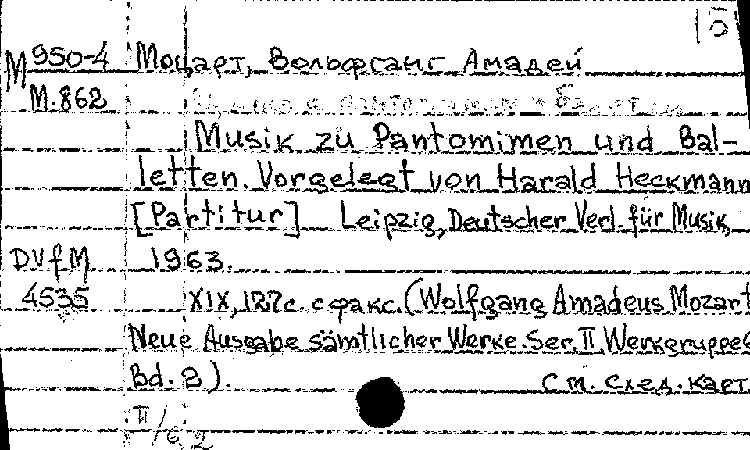 15
M 950-4 Моцарт, Вольфганг Амадей
M.862
Musik zu Pantomimen und Bal-
letten. Vorgelegt von Harald Heckmann
[Partitur] Leipzig, Deutscher Verl. für Musik,
DVfM 1963.
4535 XIX, 127с. с факс. (Wolfgang Amadeus Mozart
Neue Ausgabe sämtlicher Werke. Ser. II, Werkgruppe 6
Bd. 2). См. след. карт.
II/6 2